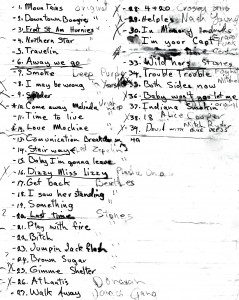 -1. Mountains original
-2. Downtown Boogie "
-3. Frost St Are Hornies "
-4. Northern Star "
-5. Travelin "
-6. Away we go
-7. Smoke Deep Purple
-8. I may be wrong
-9.
-10. Come away Melinda
-11. Time to live
-12. Love Machine
-13. Comunication Breakdown
-14. Stairway Led Zepelin
-15. Baby I'm gonna leave "
-16. Dizzy Miss Lizzy
-17. Get back Beatles
-18. I saw her standing "
-19. Something "
20. Last time Stones
-21. Play with fire "
-22. Bitch "
-23. Jumpin Jack flash "
-24. Brown Sugar "
-25. Gimme Shelter "
-26. Atlantis Donovan
-27. Walk Away James Gang
28. 4+20 Crosby Stills
29. Helpless Nash Young
-30. In Memory
I'm your Capt
33. Wild horses Stones
34. Trouble Trouble
35. Both Sides now
36. Baby won't you let me
37. Indiana
38. 18 Alice Cooper
39.
40